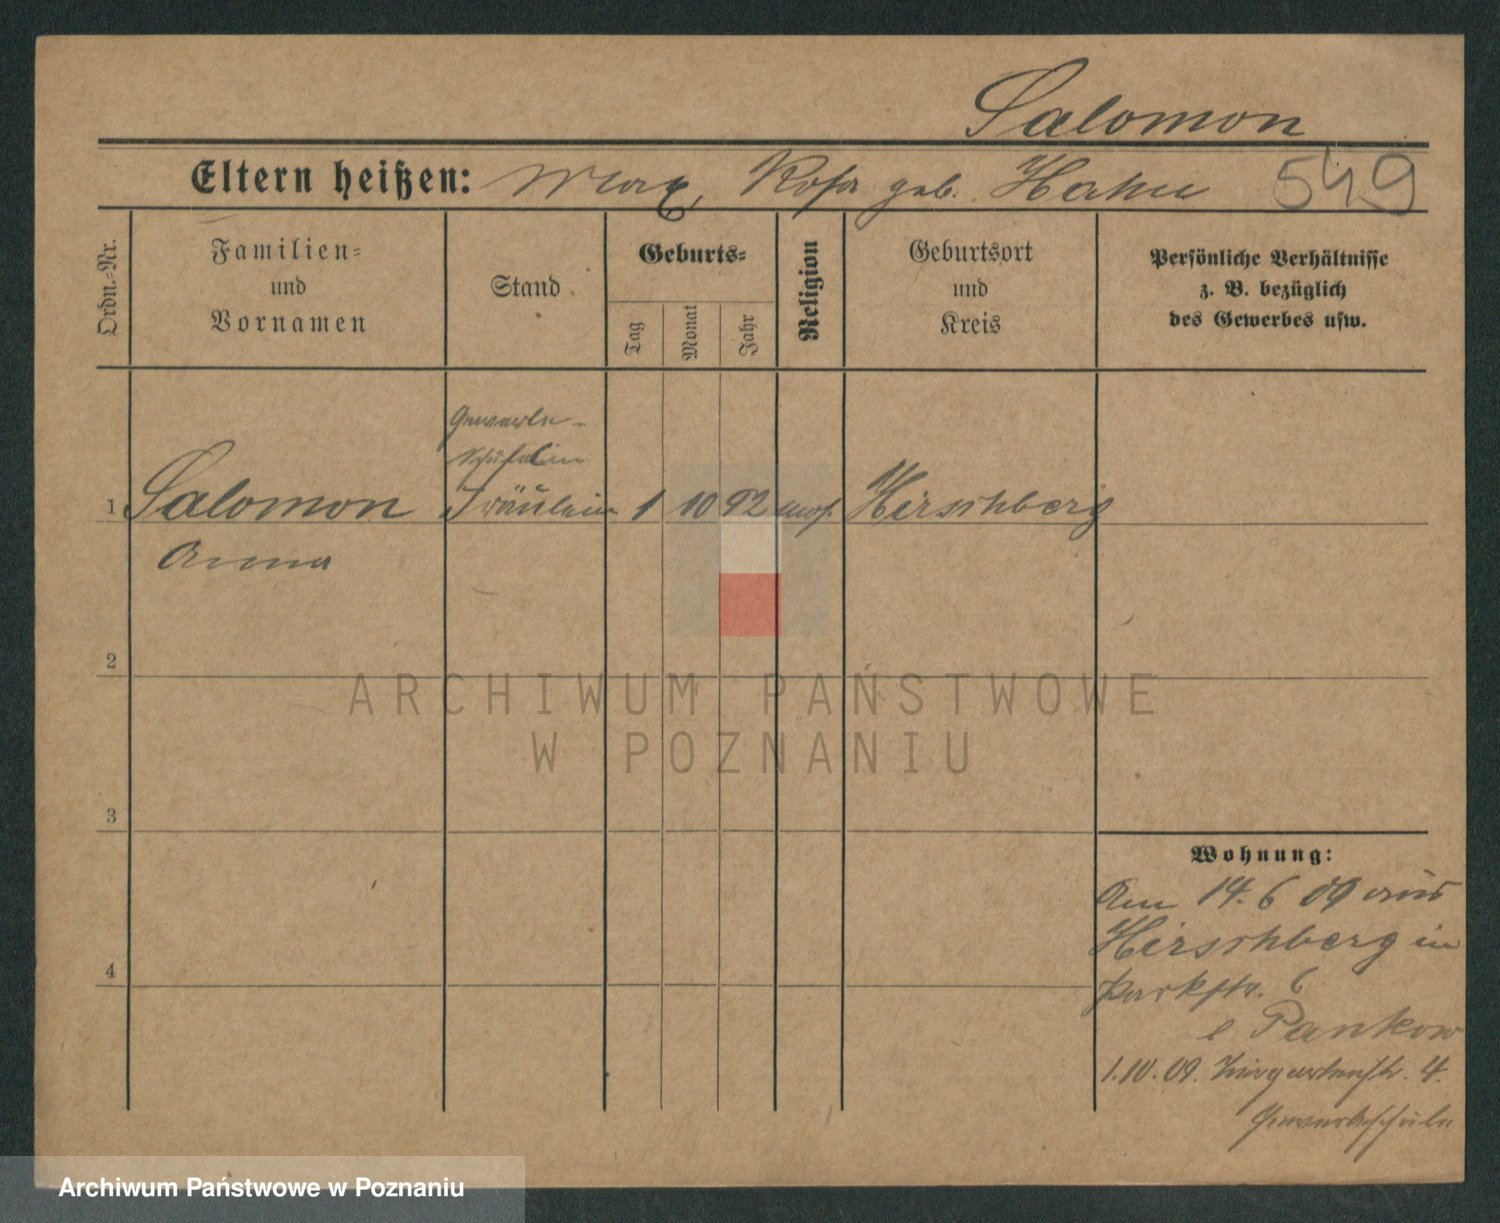 Salomon
Eltern heißen: Max, Rosa geb. Hahn 549
Ordn.-Nr.
Familien-
und
Vornamen
Stand
Geburts-
Tag
Monat
Jahr
Religion
Geburtsort
und
Kreis
Persönliche Verhältnisse
z. B. bezüglich
des Gewerbes usw.
Gewerbe-
schülerin
1 Salomon Fräulein 1 10 92 mos. Hirschberg
Anna
2
ARCHIWUM PAŃSTWOWE
W POZNANIU
3
Wohnung:
Am 14. 6 09 aus
Hirschberg in
4
Parkstr. 6
Pankow
1.10.09. 4.
Gewerbeschule
Archiwum Państwowe w Poznaniu